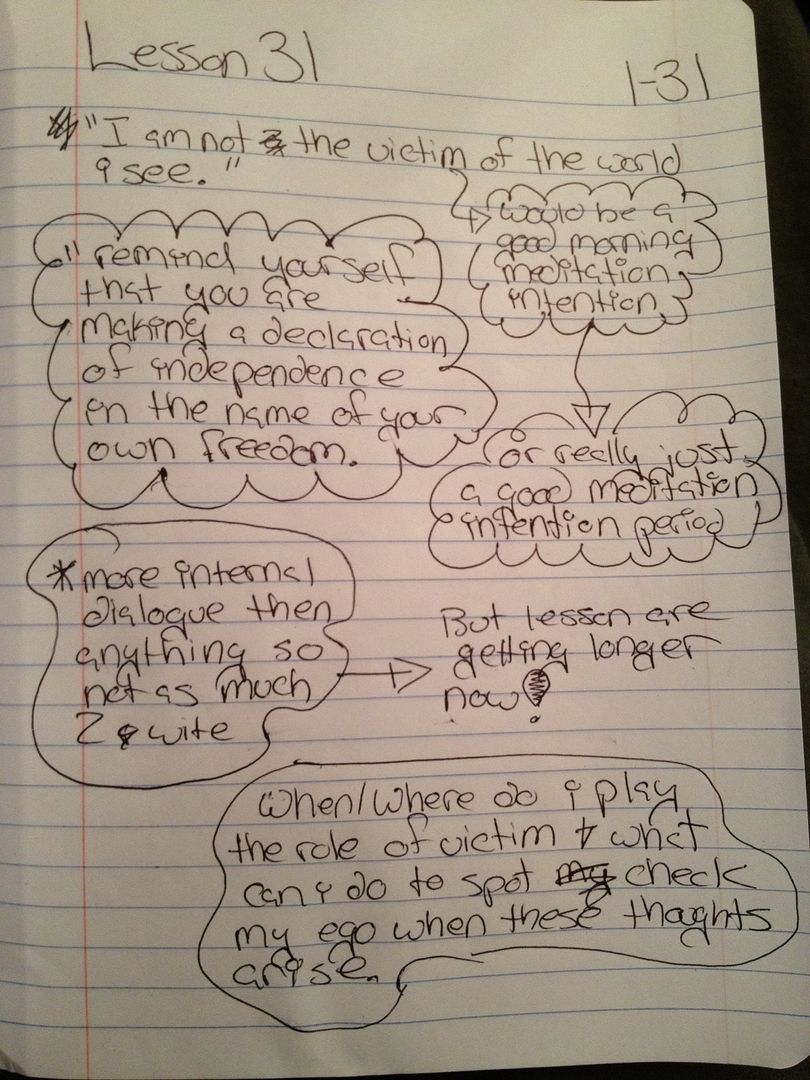 Lesson 31
1-31
"I am not the victim of the world
i see."
would be a
good morning
meditation
intention
"remind yourself
that you are
making a declaration
of independence
in the name of your
own freedom.
or really just
a good meditation
intention period
*more internal
dialogue then
anything so
not as much
2 wite
But lesson are
getting longer
now!
When/Where do i play
the role of victim & what
can i do to spot my check
my ego when these thoughts
arise.